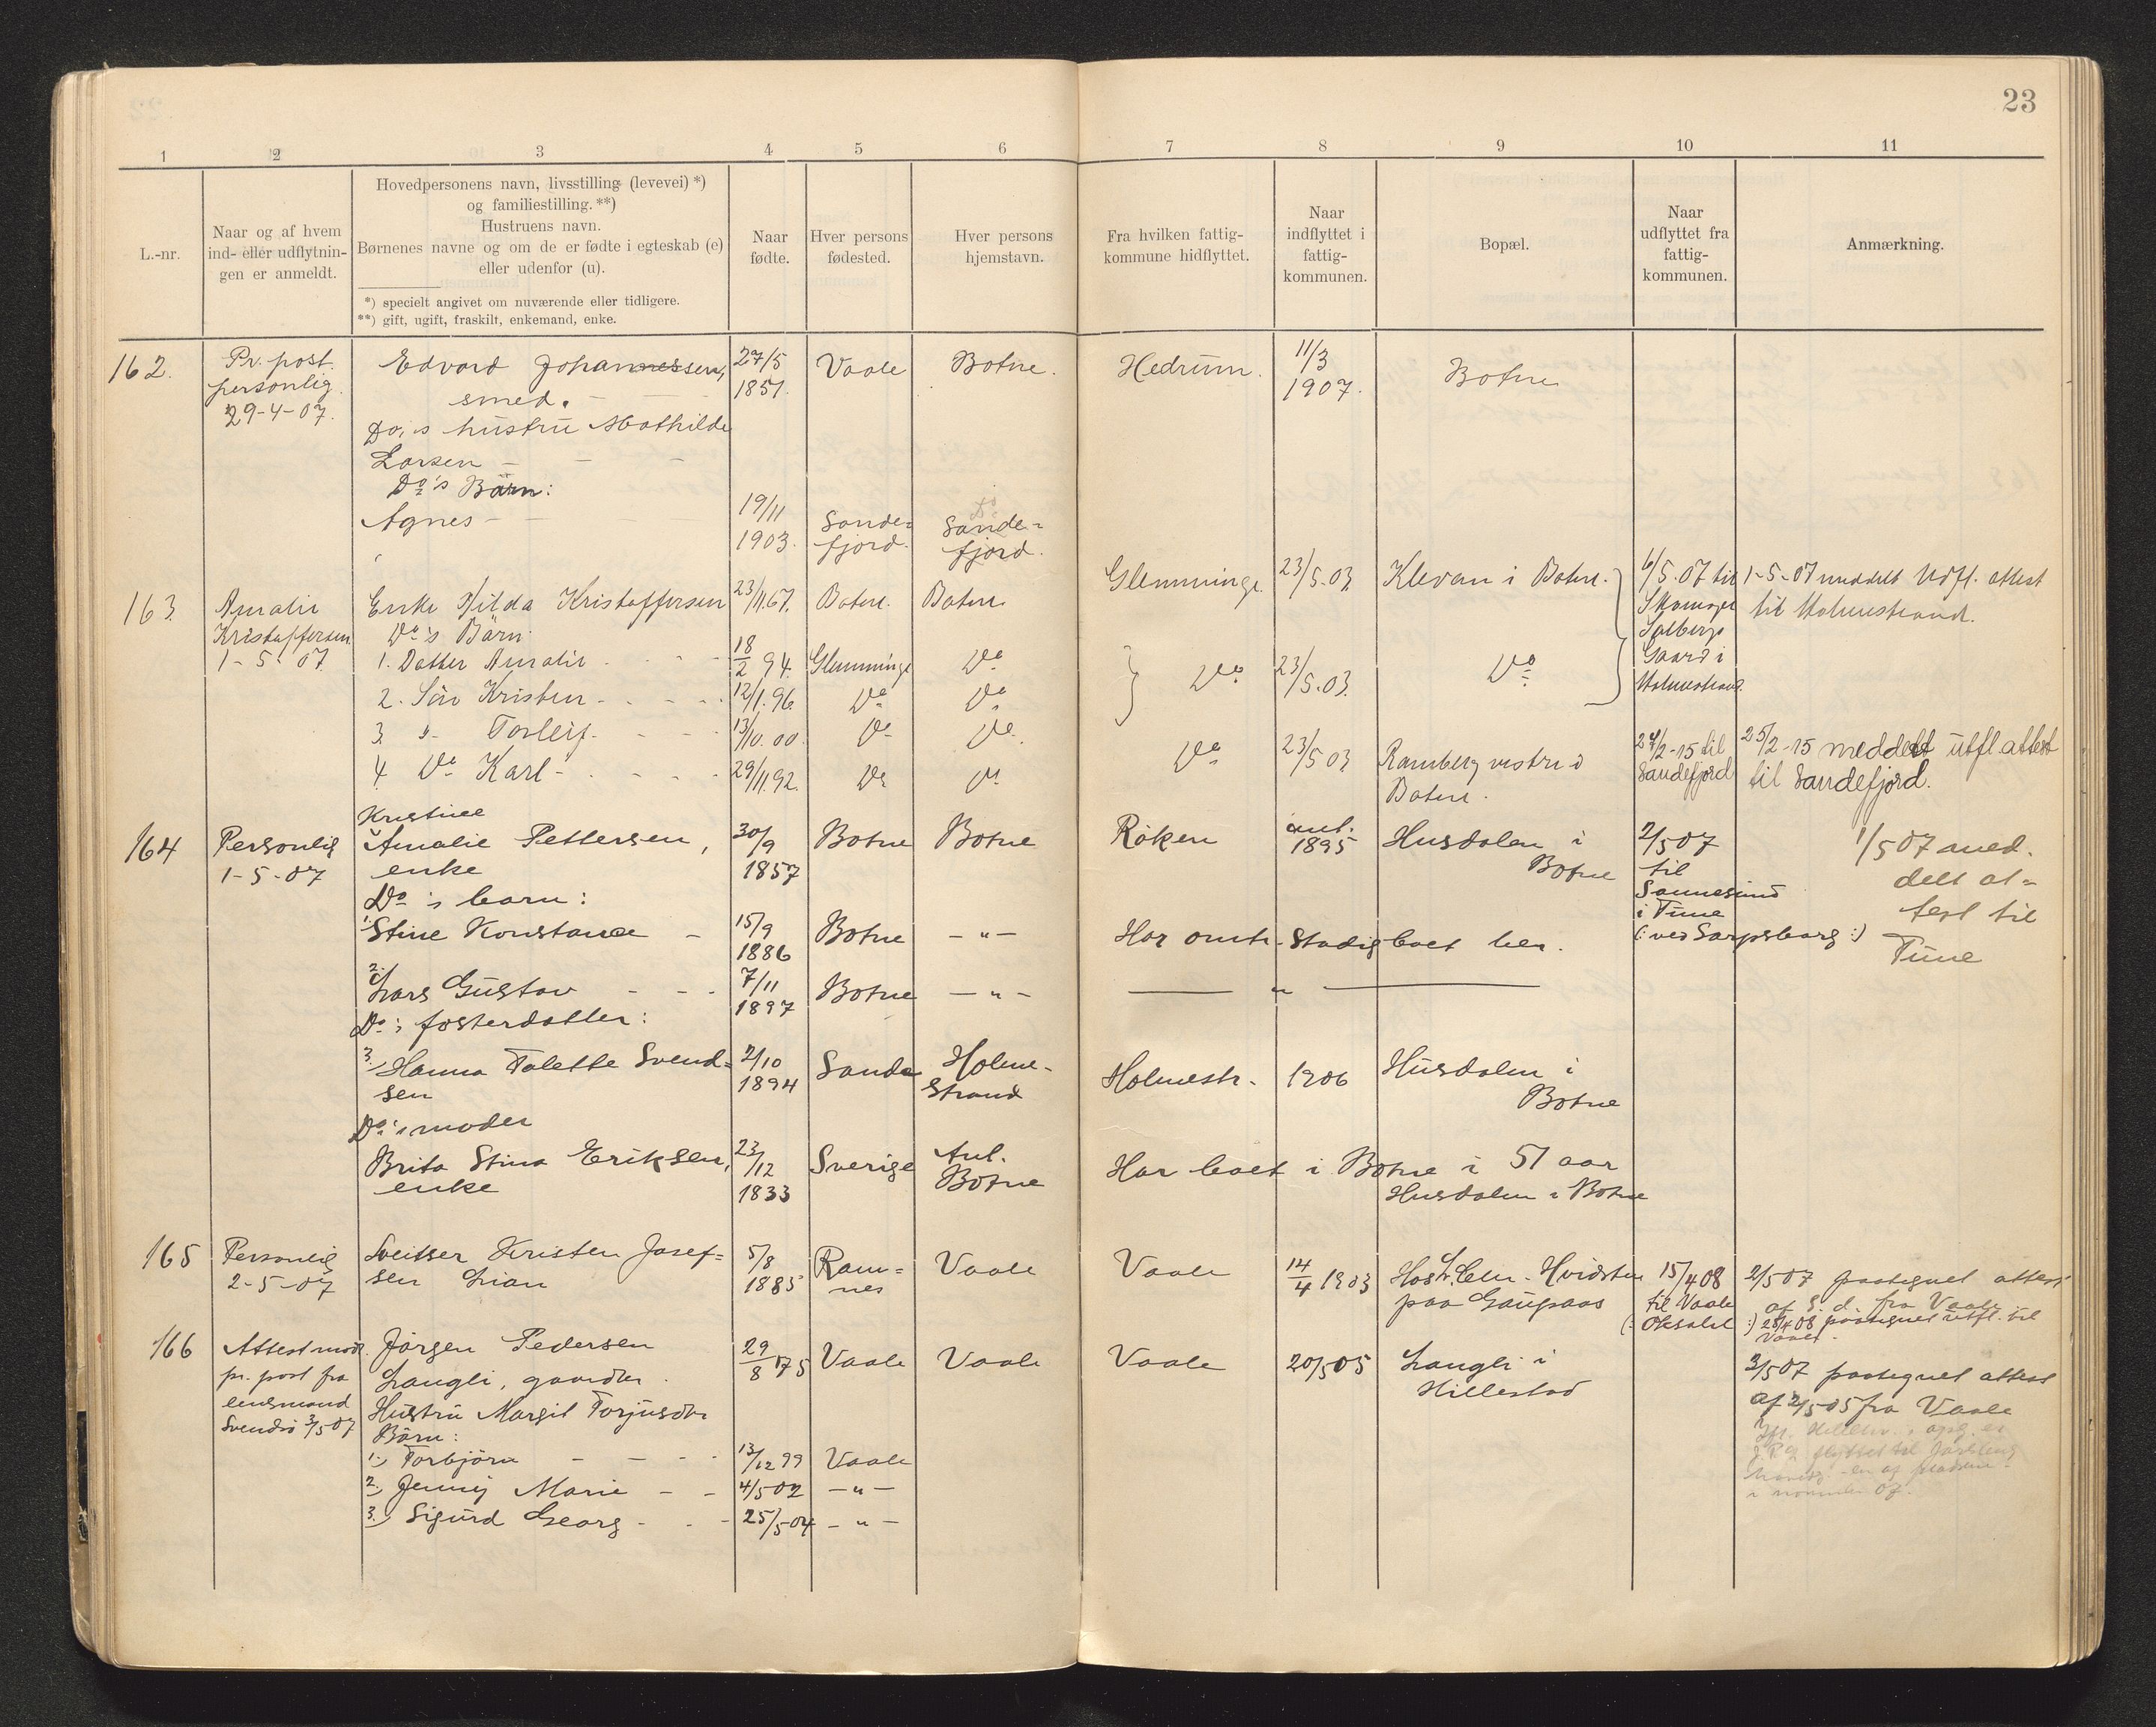 23
1 2 3 4 5 6 7 8 9 10 11
L.-nr.
Naar og af hvem
ind- eller udflytnin-
gen er anmeldt.
Hovedpersonens navn, livsstilling (levevei) *)
og familiestilling. **)
Hustruens navn.
Børnenes navne og om de er fødte i egteskab (e)
eller udenfor (u).
*) specielt angivet om nuværende eller tidligere.
**) gift, ugift, fraskilt, enkemand, enke.
Naar
fødte.
Hver persons
fødested.
Hver persons
hjemstavn.
Fra hvilken fattig-
kommune hidflyttet.
Naar
indflyttet i
fattig-
kommunen.
Bopæl.
Naar
udflyttet fra
fattig-
kommunen.
Anmærkning.
162.
Pr. post.
personlig.
29-4-07.
Edvard Johannessen,
smed. - - -
Do,s hustru Mathilde
Larsen - - -
Do's Børn:
Agnes - - -
27/5
1851.
19/11
1903.
Vaale
Sande-
fjord.
Botne.
Do
Sande-
fjord.
Hedrum.
11/3
1907.
Botne
163.
Amalie
Kristoffersen
1-5-07.
Enke Hilda Kristoffersen
Do's Børn.
1. Datter Amalie - - -
2. Søn Kristen - - - -
3. "- Torleif. - - -
4 Do Karl - - - -
23/11.67.
18/2 94.
12/1.96.
13/10.00.
29/11.92.
Botne.
Glemminge
Do
Do
Do
Botne.
Do
Do
Do
Do
Glemminge
Do
Do
23/5.03.
23/5.03.
23/5 03.
Klevan i Botne.
Do
Ramberg vestre i
Botne.
6/5.07 til
Skomager
Solbergs
Gaard i
Holmestrand.
24/2-15 til
Sandefjord
1-5-07 meddelt Udfl. attest
til Holmestrand.
25/2-15 meddelt utfl attest
til Sandefjord.
164
Personlig
1-5-07
Kristine
Amalie Pettersen,
enke
Do's barn:
1. Stine Konstance -
2. Lars Gustav - - -
Do's fosterdatter:
3. Hanna Valette Svend-
sen
Do's moder
Brita Stina Eriksen,
enke
30/9
1857
15/9
1886
7/11
1897
2/10
1894
23/12
1833
Botne
Botne
Botne
Sande
Sverige
Botne
-"-
-"-
Holme-
strand
Ant.
Botne
Røken
Har omtr. stadig boet her.
- " -
Holmestr.
Har boet i Botne i 51 aar
ant.
1895
1906
Husdalen i
Botne
Husdalen i
Botne
Husdalen i Botne
2/5 07
til
Sannesund
i Tune
(: ved Sarpsborg :)
1/5 07 med-
delt at-
test til
Tune
165
Personlig
2-5-07
Sveitser Kristen Josef-
sen Lian
5/8
1885
Ram-
nes
Vaale
Vaale
14/4 1903
Hos Hvidsten
paa Gaupaas
15/4 08
til Vaale
2/5 07 paategnet attest
af fra Vaale
28/4 08 paategnet utfl. til
Vaale.
166
Attest modt.
pr. post fra
lensmand
Svendsø 3/5 07
Jørgen Pedersen
Langli, gaardbr.
Hustru Margit Torjusdtr
Børn:
1.) Torbjørn - - - -
2.) Jenny Marie - -
3.) Sigurd Georg - - -
29/8 75
13/12 99
4/5 02
25/5-04
Vaale
Vaale
-"-
-"-
Vaale
Vaale
20/5 05
Langli i
Hillestad
3/5 07 paategnet attest
af 2/5 05 fra Vaale
J. P. L. flyttet til Jarlsberg